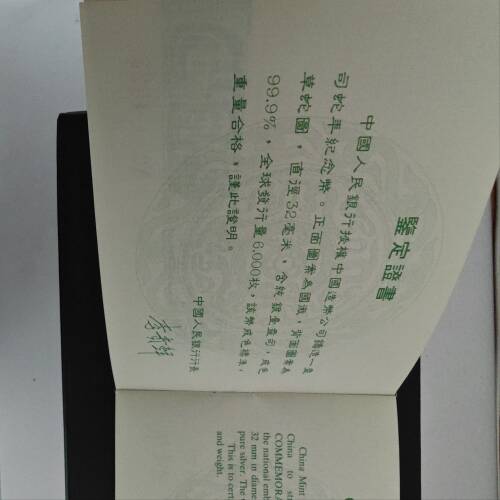 鑒定證書
中國人民銀行授權中國造幣公司鑄造一盎
司蛇年紀念幣。正面圖案為國徽,背面圖案為
草蛇圖,直徑32毫米,含純銀量盎司,成色
99.9%,全球發行量6,000枚,該幣成色標準,
重量合格,謹此證明。
中國人民銀行行長
China Mint
China to st
COMMEMORA
the national emb
32 mm in diame
pure silver. The
This is to cert
and weight.